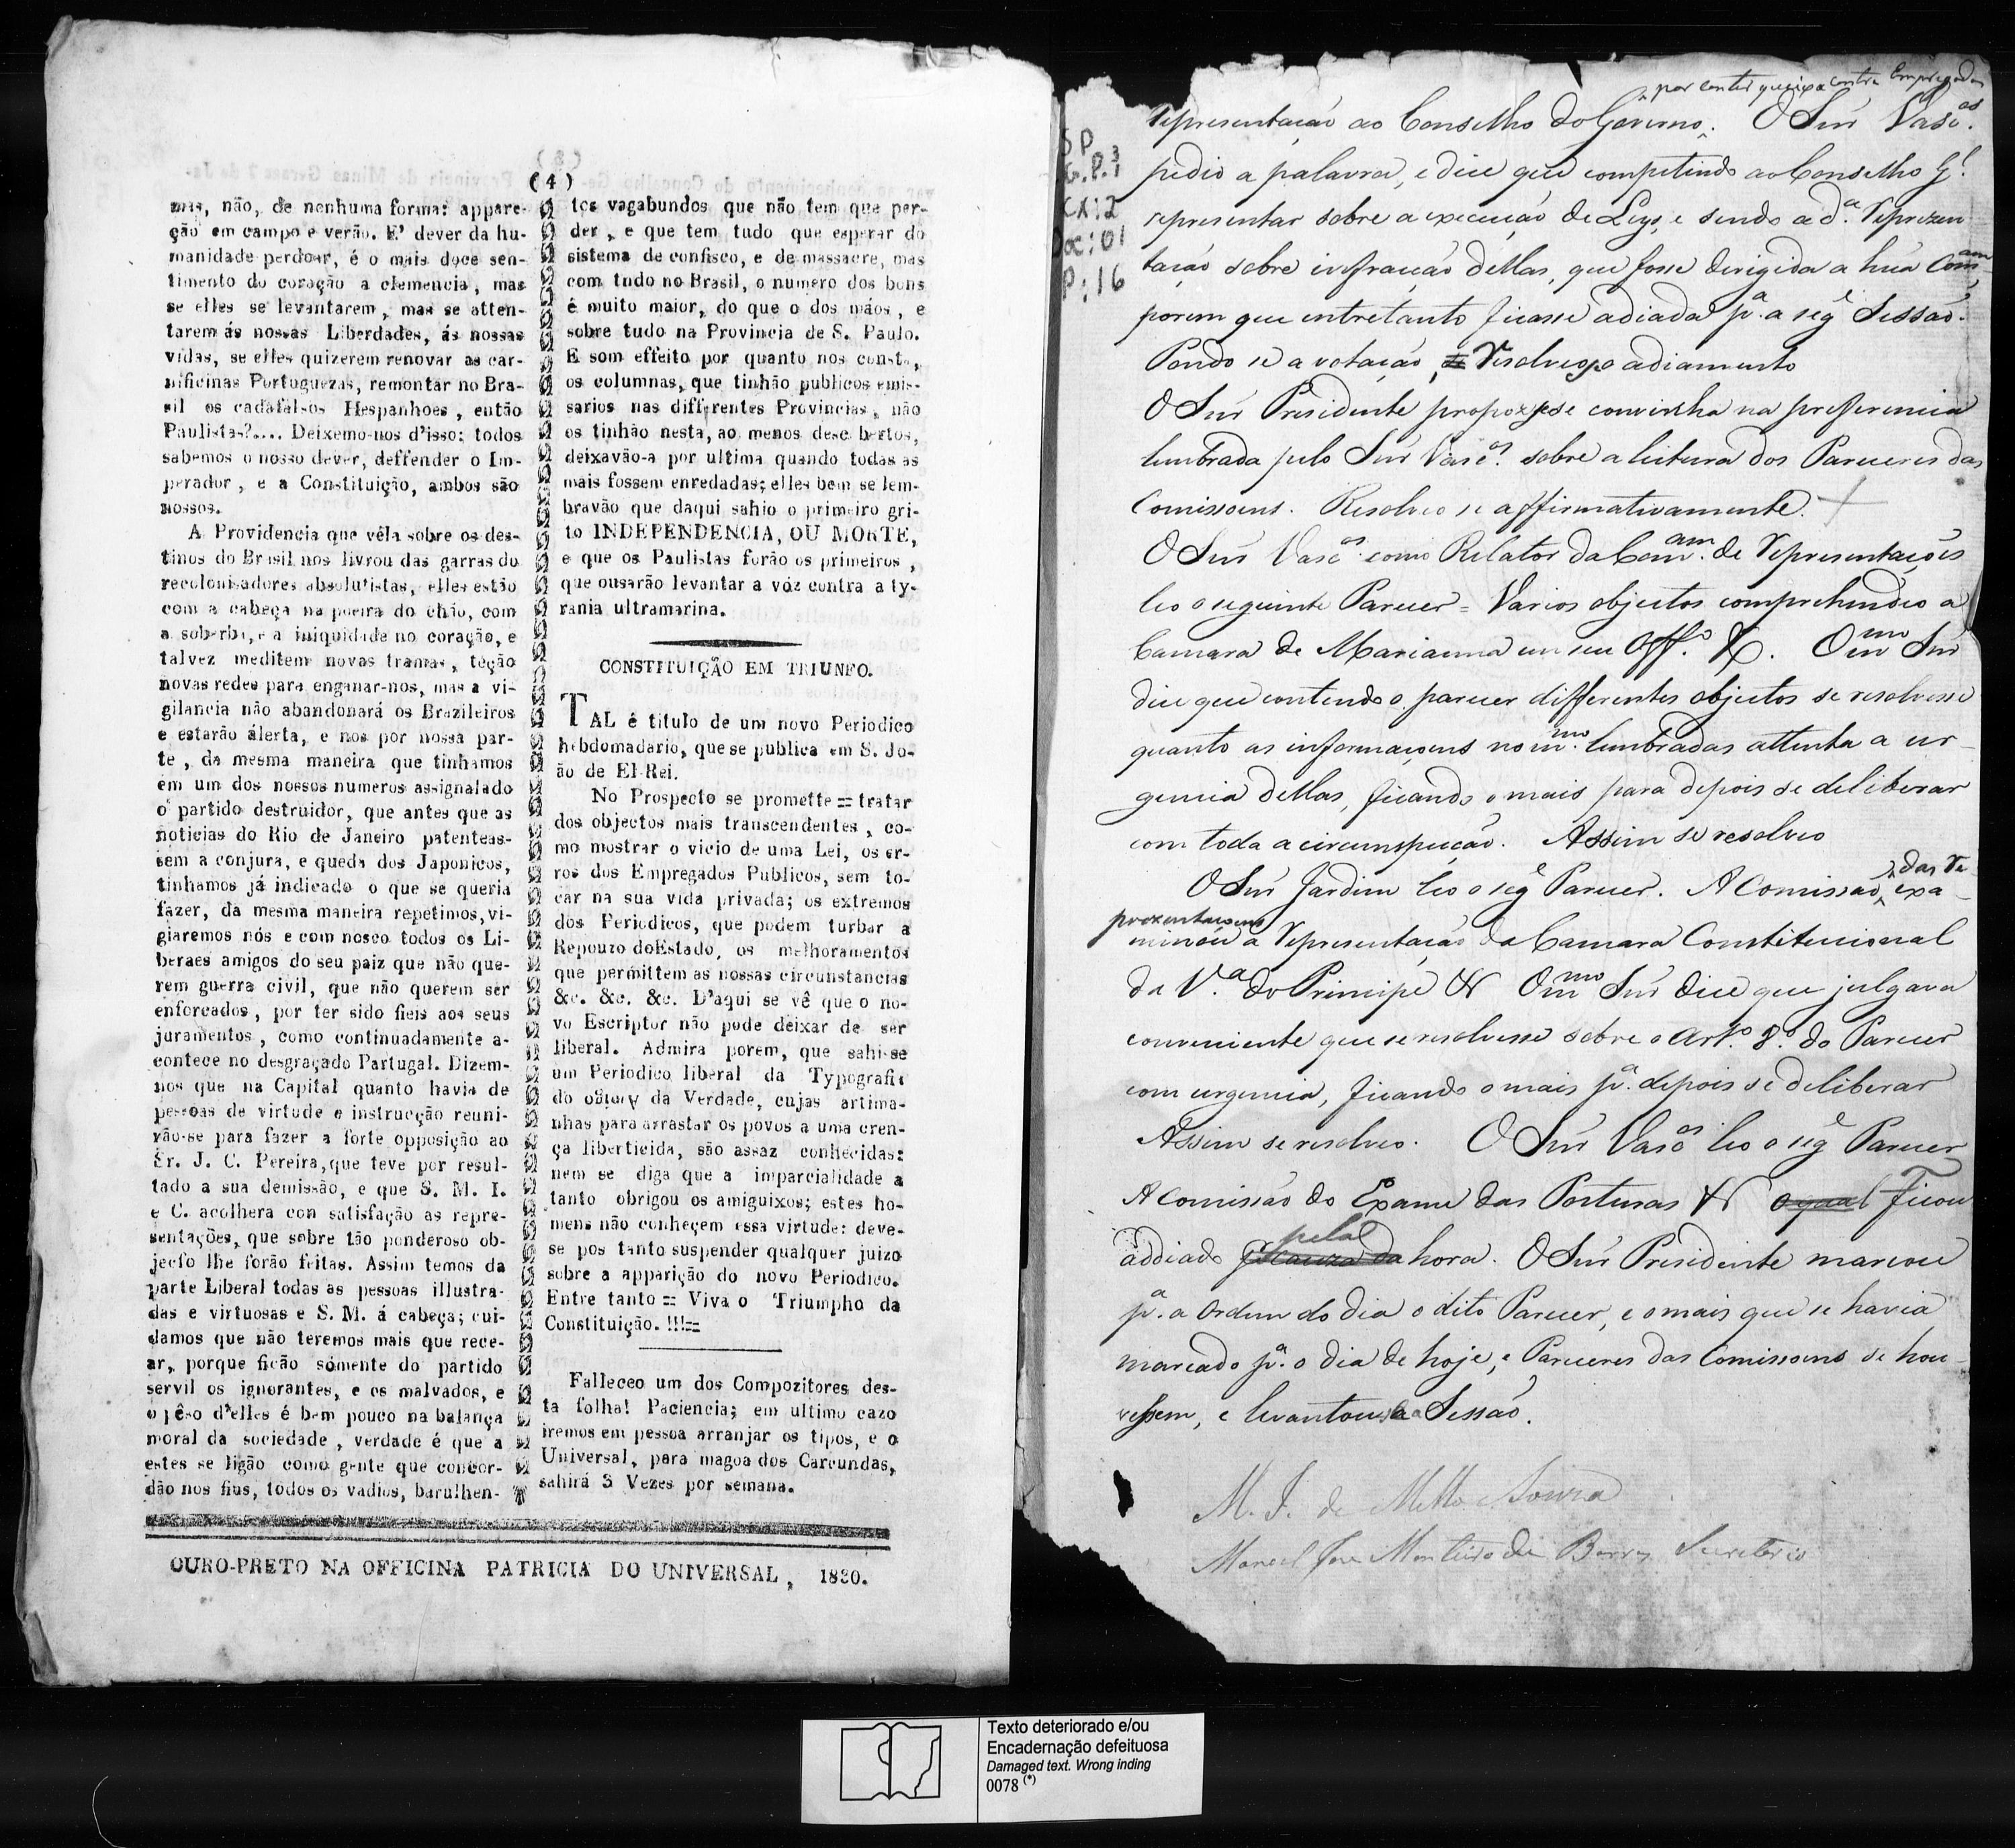 (4)
mas, não, de nenhuma forma: appare-
ção em campo e verão. E' dever da hu-
manidade perdoar, é o mais doce sen-
timento do coração a clemencia, mas
se elles se levantarem, mas se atten-
tarem ás nossas Liberdades, ás nossas
vidas, se elles quizerem renovar as car-
nificinas Portuguezas, remontar no Bra-
sil os cadafalsos Hespanhoes, então
Paulistas?.... Deixemo-nos d'isso: todos
sabemos o nosso dever, deffender o Im-
perador, e a Constituição, ambos são
nossos.
A Providencia que véla sobre os des-
tinos do Brasil nos livrou das garras do
recolonisadores absolutistas, elles estão
com a cabeça na poeira do chão, com
a soberba, e a iniquidade no coração, e
talvez meditem novas tramas, teção
novas redes para enganar-nos, mas a vi-
gilancia não abandonará os Brazileiros
e estarão álerta, e nos por nossa par-
te, da mesma maneira que tinhamos
em um dos nossos numeros assignalado
o partido destruidor, que antes que as
noticias do Rio de Janeiro patenteas-
sem a conjura, e queda dos Japonicos,
tinhamos já indicado o que se queria
fazer, da mesma maneira repetimos, vi-
giaremos nós e com nosco todos os Li-
beraes amigos do seu paiz que não que-
rem guerra civil, que não querem ser
enforcados, por ter sido fieis aos seus
juramentos, como continuadamente a-
contece no desgraçado Partugal. Dizem-
nos que na Capital quanto havia de
pessoas de virtude e instrucção reuni-
rão-se para fazer a forte opposição ao
Sr. J. C. Pereira, que teve por resul-
tado a sua demissão, e que S. M. I.
e C. acolhera con satisfação as repre-
sentações, que sobre tão ponderoso ob-
jecto lhe forão feitas. Assim temos da
parte Liberal todas as pessoas illustra-
das e virtuosas e S. M. á cabeça; cui-
damos que não teremos mais que rece-
ar, porque ficão sómente do partido
servil os ignorantes, e os malvados, e
o pêso d'elles é bem pouco na balança
moral da sociedade, verdade é que a
estes se ligão como gente que concor-
dão nos fins, todos os vadios, barulhen-
tos vagabundos que não tem que per-
der, e que tem tudo que esperar do
sistema de confisco, e de massacre, mas
com tudo no Brasil, o numero dos bons
é muito maior, do que o dos máos, e
sobre tudo na Provincia de S. Paulo.
E som effeito por quanto nos consta,
os columnas, que tinhão publicos emis-
sarios nas differentes Provincias, não
os tinhão nesta, ao menos descobertos,
deixavão-a por ultima quando todas as
mais fossem enredadas; elles bem se lem-
bravão que daqui sahio o primeiro gri-
to INDEPENDENCIA, OU MORTE,
e que os Paulistas forão os primeiros,
que ousarão levantar a vóz contra a ty-
rania ultramarina.
CONSTITUIÇÃO EM TRIUNFO.
TAL é titulo de um novo Periodico
hebdomadario, que se publica em S. Jo-
ão de El-Rei.
No Prospecto se promette = tratar
dos objectos mais transcendentes, co-
mo mostrar o vicio de uma Lei, os er-
ros dos Empregados Publicos, sem to-
car na sua vida privada; os extremos
dos Periodicos, que podem turbar a
Repouzo do Estado, os melhoramentos
que permittem as nossas circunstancias
&c. &c. &c. D'aqui se vê que o no-
vo Escriptor não pode deixar de ser
liberal. Admira porem, que sahi-se
um Periodico liberal da Typografia
do da Verdade, cujas artima-
nhas para arrastar os povos a uma cren-
ça liberticida, são assaz conhecidas:
nem se diga que a imparcialidade a
tanto obrigou os amiguixos; estes ho-
mens não conheçem essa virtude: deve-
se pos tanto suspender qualquer juizo
sobre a apparição do novo Periodico.
Entre tanto = Viva o Triumpho da
Constituição. !!!==
Falleceo um dos Compozitores des-
ta folha! Paciencia; em ultimo cazo
iremos em pessoa arranjar os tipos, e o
Universal, para magoa dos Carcundas,
sahirá 3 Vezes por semana.
OURO-PRETO NA OFFICINA PATRICIA DO UNIVERSAL, 1830.
SP
G.P. 3/1
CX: 2
Doc: 01
P: 16
por conter queixa contra Empregados
representação ao Conselho do Governo. O Snr Vascos.
pedio a palavra, e dice que competindo ao Conselho Gl.
representar sobre a execução de Leys, e sendo a da. reprezen
tação sobre infracção dellas, que fosse dirigida a hũa Comam,
porem que entretanto ficasse adiada pa. a sege Sessão.
Pondo se a votação, resolveo-se o adiamento
O Snr Presidente propoz se convinha na preferencia
lembrada pelo Snr Vascos. sobre a leitura dos Pareceres das
Comissoens. Resolveo se affirmativamente.
O Snr Vascos. como Relator da Comam. de representações
leo o seguinte Parecer = Varios objectos comprehendeo a
Camara de Marianna em seu Offo. &. O mmo Snr
dice que contendo o parecer differentes objectos se resolvesse
quanto as informaçoens no mmo. lembradas attenta a ur-
gencia dellas, ficando o mais para depois se deliberar
com toda a circunspecção. Assim se resolveo
O Snr Jardim leo o sege Parecer. A Comissão das re
prezentaçoens exa-
minou a representação da Camara Constitucional
da Va. do Principe &. O mmo Snr dice que julgava
conveniente que se resolvesse sobre o Arto. 8o. do Parecer
com urgencia, ficando o mais pa. depois se deliberar
Assim se resolveo. O Snr Vascos leo o sege Parecer
A Comissão do Exame das Posturas & o qual ficou
pela
addiado hora. O Snr Presidente marcou
pa. a Ordem do dia o dito Parecer, e o mais que se havia
marcado pa. o dia de hoje, e Pareceres das Comissoens se hou-
vessem, e levantou a Sessão.
M. I. de Mello Souza
Manoel Jose Monteiro de Barros Secretario
Texto deteriorado e/ou
Encadernação defeituosa
Damaged text. Wrong inding
0078 (*)